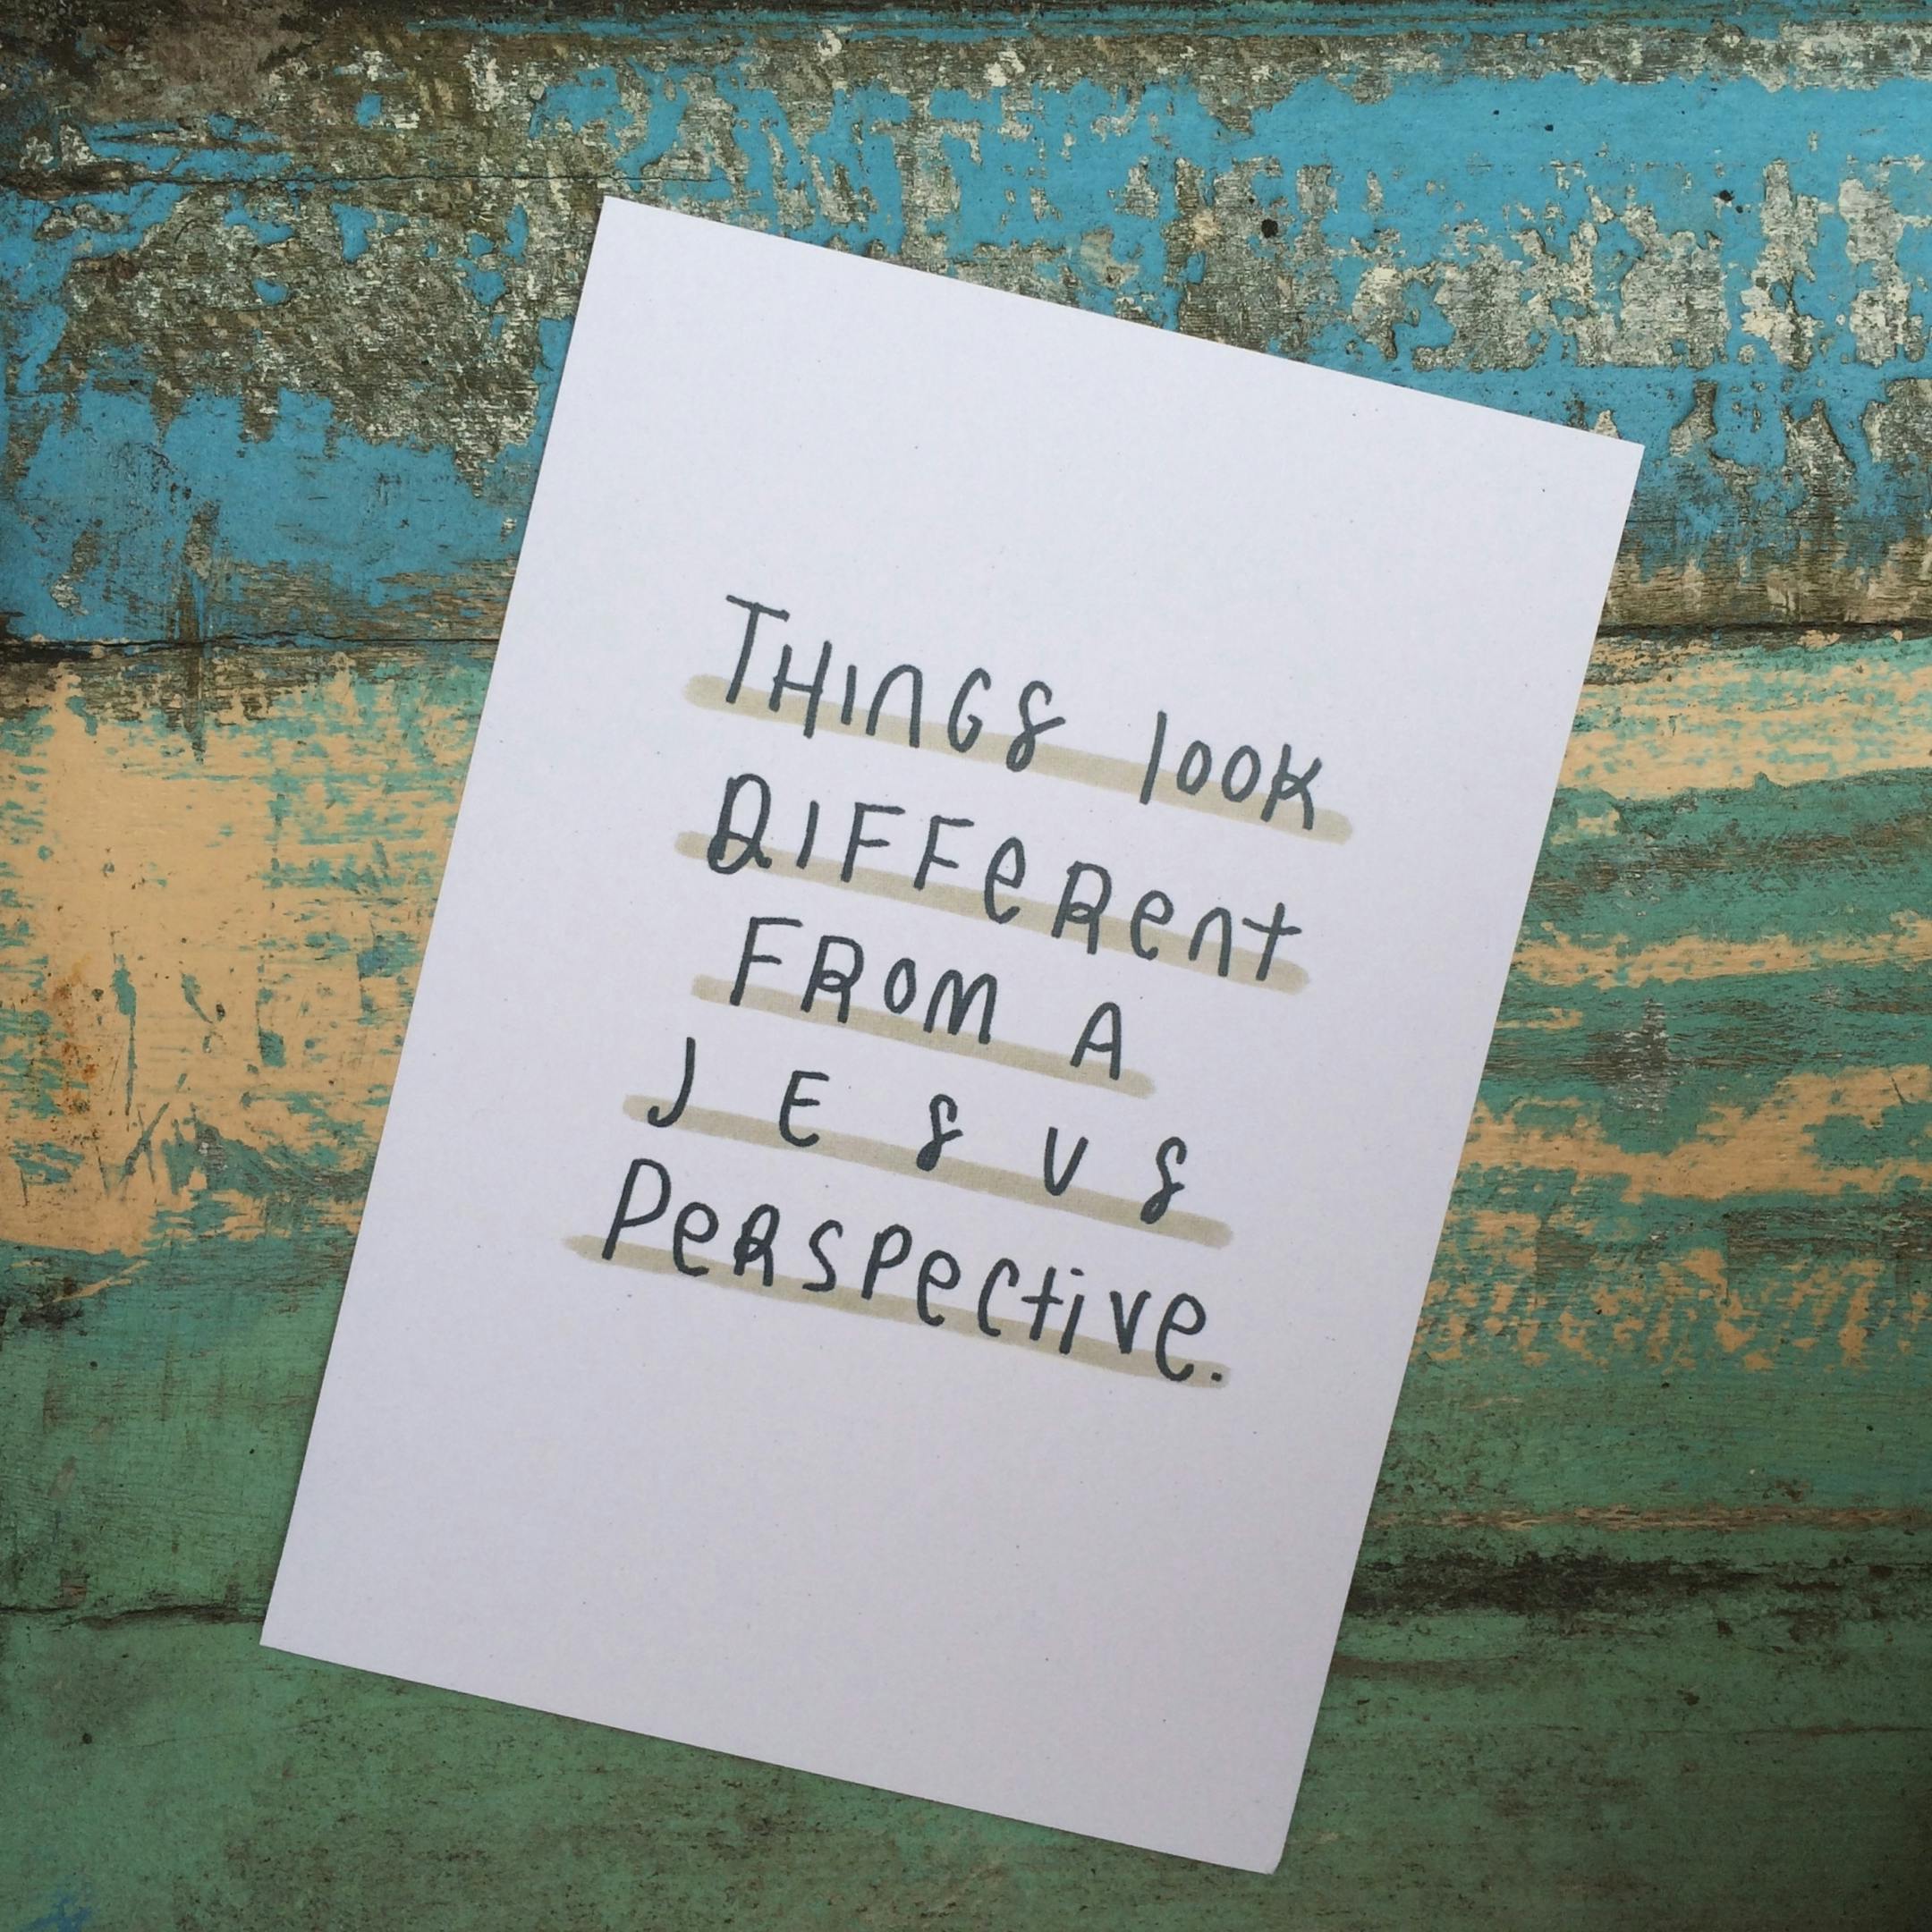 THINGS look
DIFFERent
FROM A
JESUS
PeRSPective.